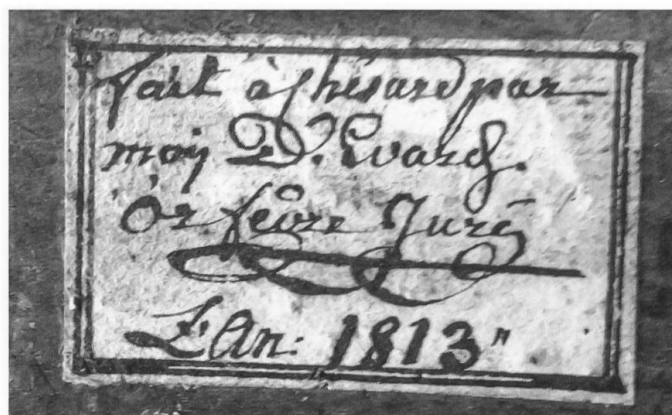 fait à Chésard par
moÿ D. Evard.
Orfèvre Juré
L'An: 1813"